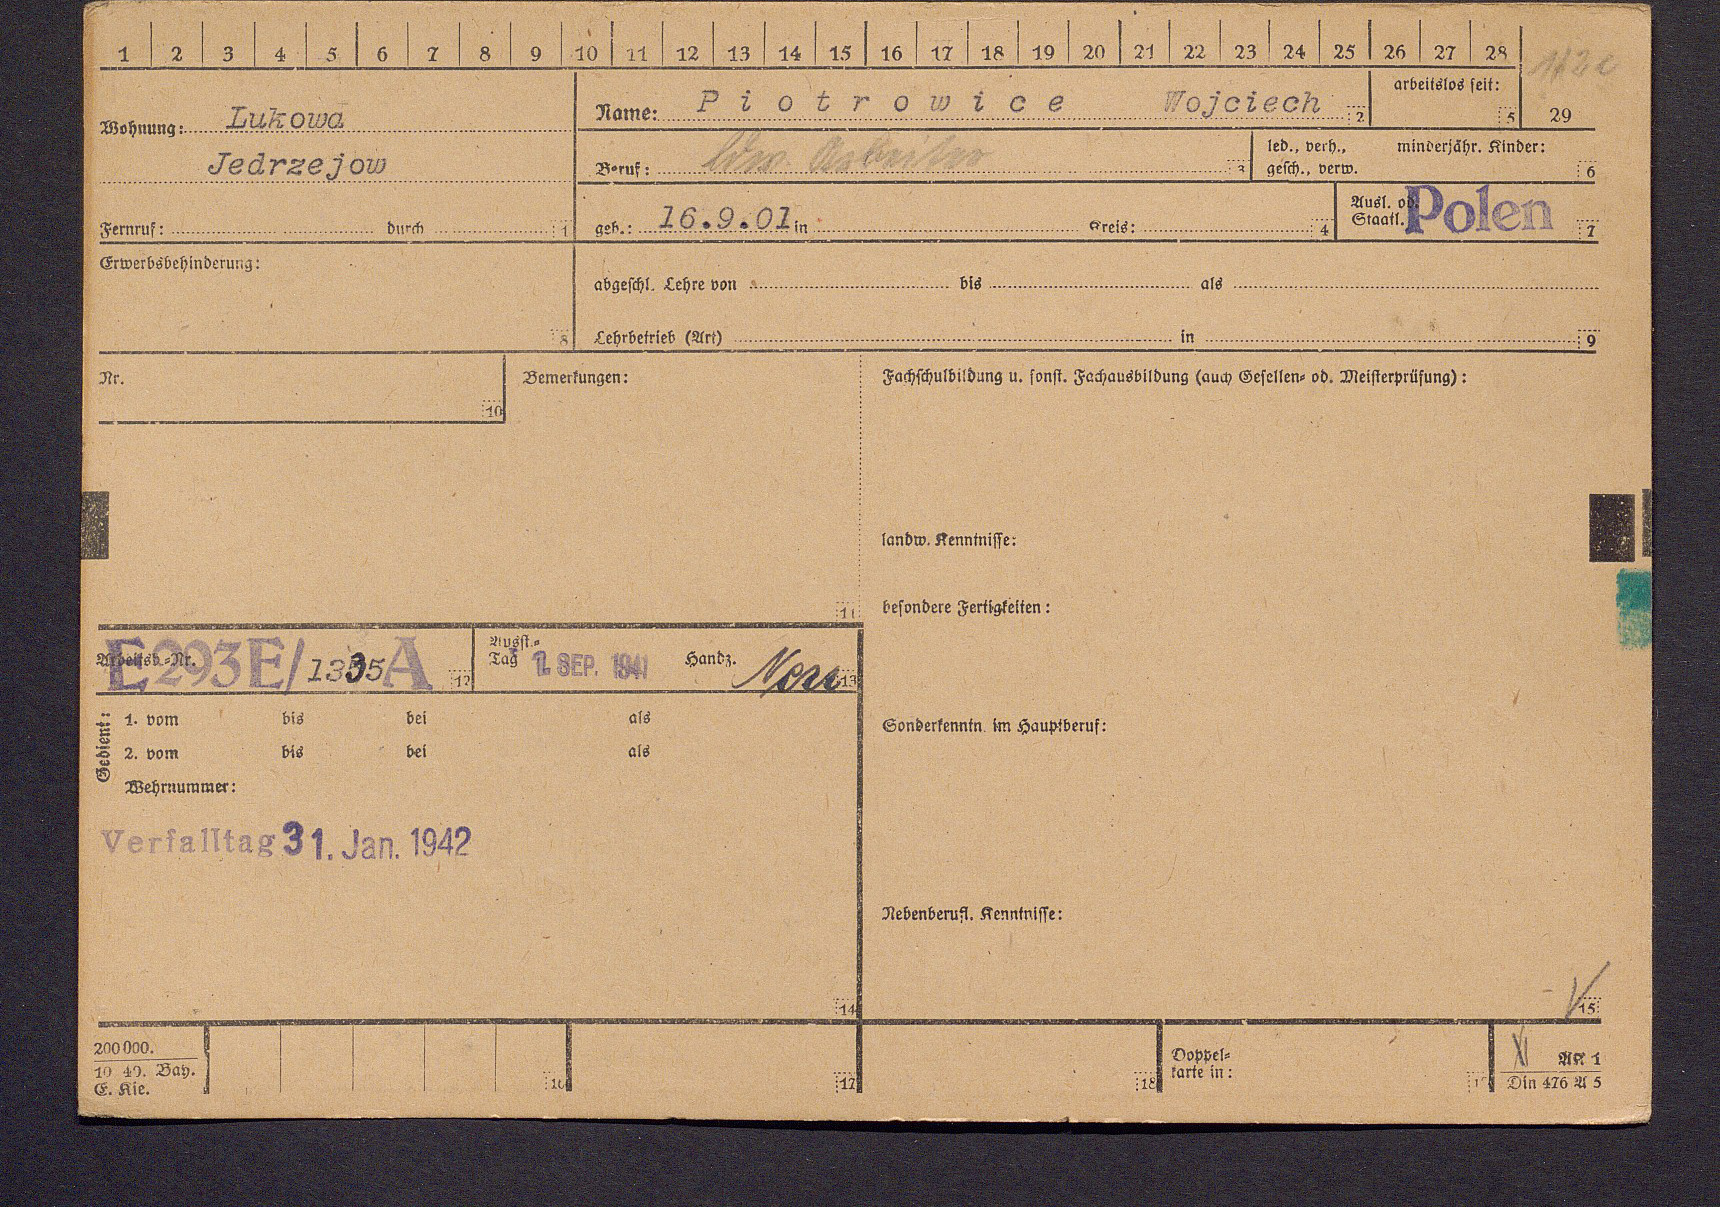 1 2 3 4 5 6 7 8 9 10 11 12 13 14 15 16 17 18 19 20 21 22 23 24 25 26 27 28
Wohnung: Lukowa
Jedrzejow
Fernruf: durch 1
Name: Piotrowice Wojciech 2
arbeitslos seit: 5
29
Beruf: Arbeiter 3
led., verh., minderjähr. Kinder:
gesch., verw. 6
geb.: 16.9.01 in Kreis: 4
Ausl. od.
Staatl. Polen 7
Erwerbsbehinderung:
8
abgeschl. Lehre von bis als
Lehrbetrieb (Art) in 9
Nr.
10
Bemerkungen:
11
Fachschulbildung u. sonst. Fachausbildung (auch Gesellen- od. Meisterprüfung):
landw. Kenntnisse:
besondere Fertigkeiten:
Sonderkenntn. im Hauptberuf:
Nebenberufl. Kenntnisse:
15
Arbeitsb.-Nr. E293E/1335A 12
Ausst.-
Tag SEP. 1941 Handz. 13
Gedient:
1. vom bis bei als
2. vom bis bei als
Wehrnummer:
Verfalltag 31. Jan. 1942
14
200000.
10 40. Bay.
E. Kie.
16
17
18
Doppel-
karte in:
XI
AK 1
Din 476 A 5